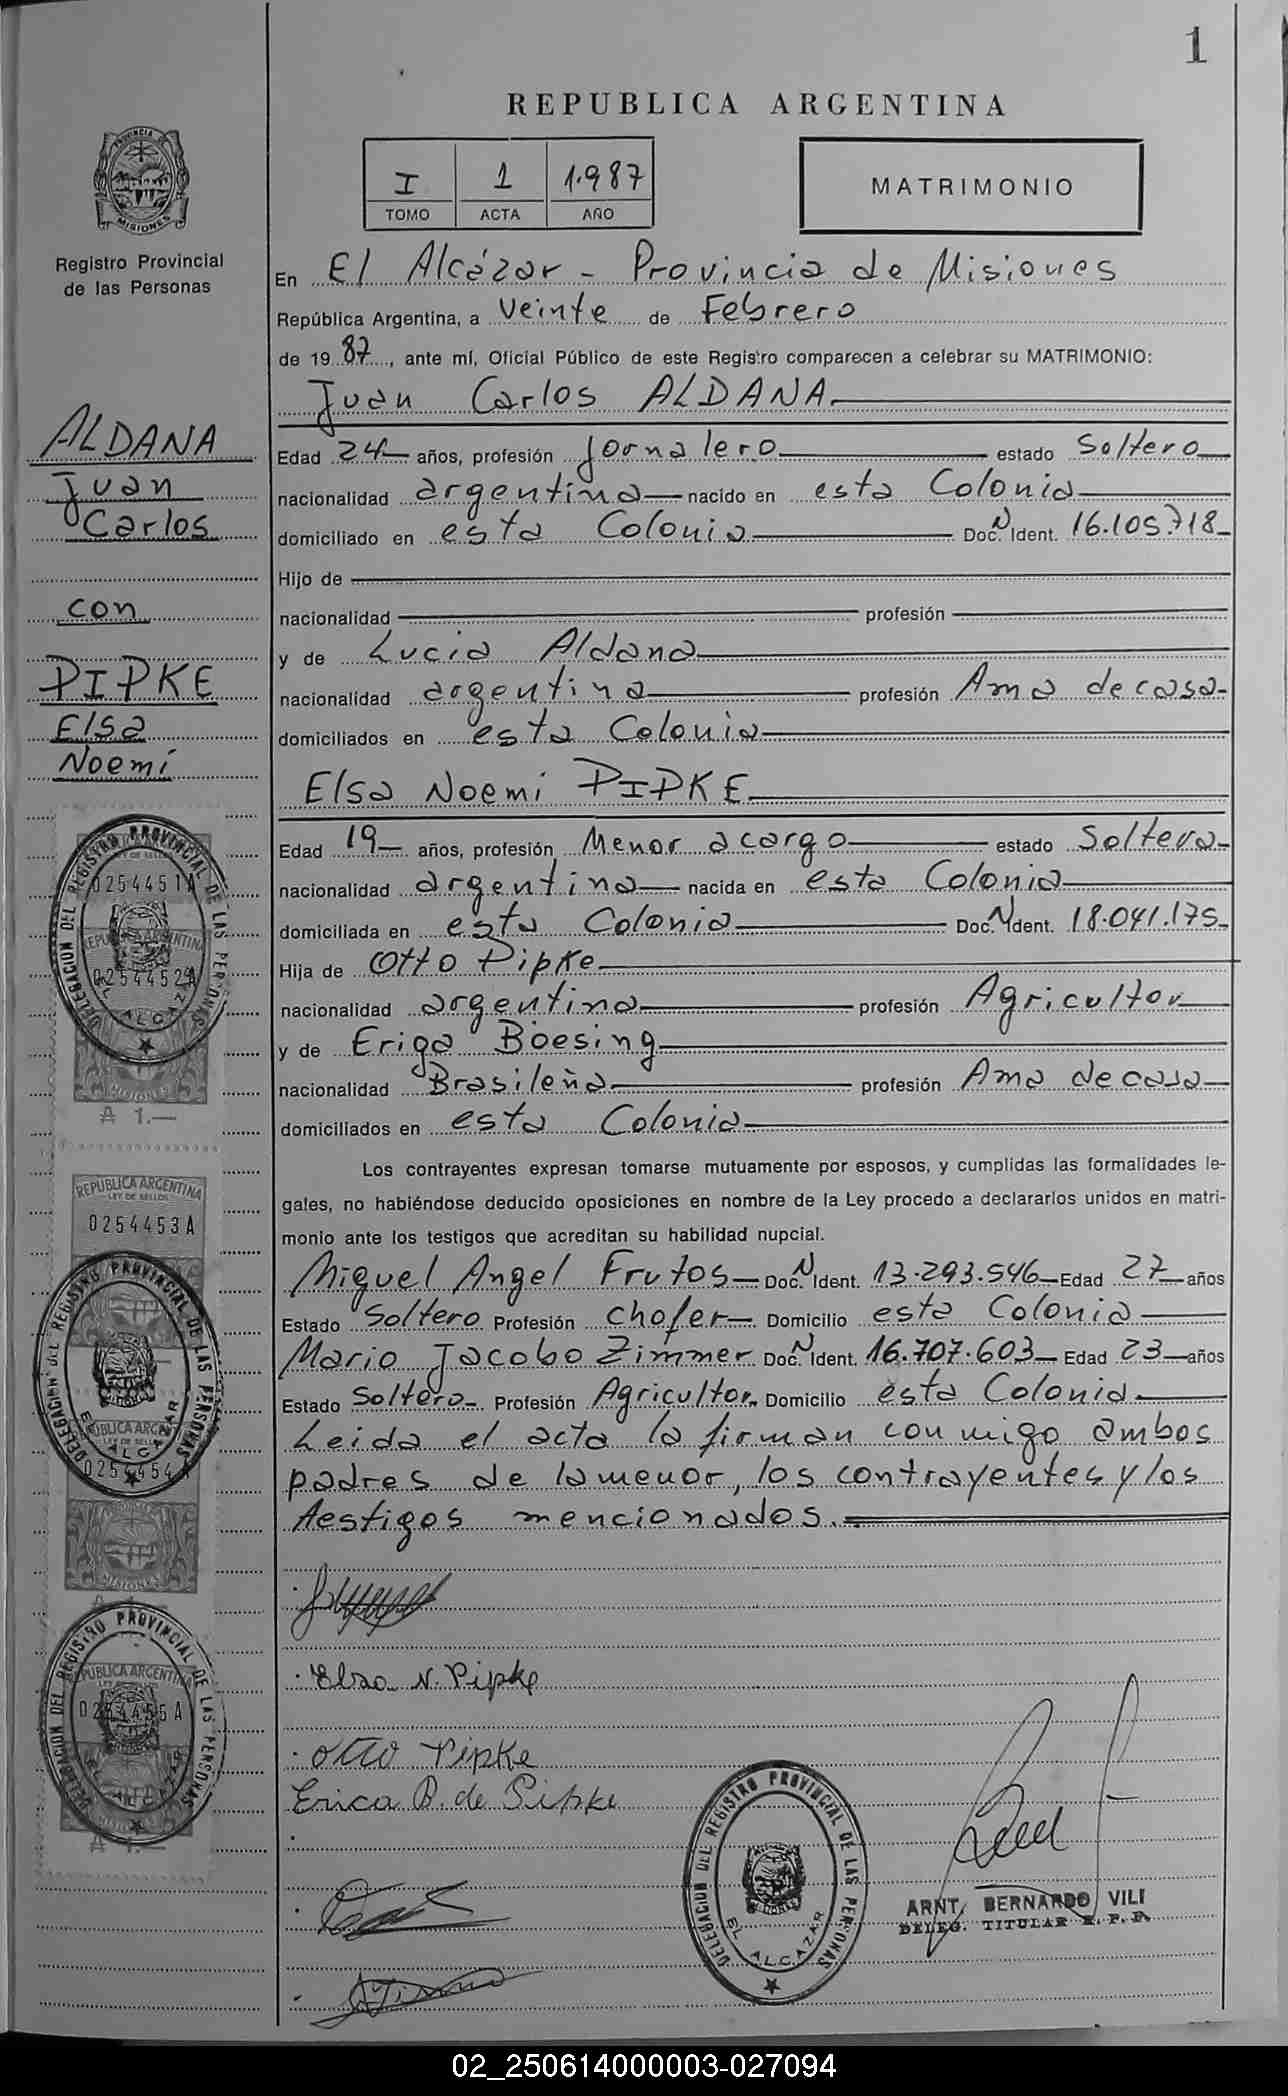 1
REPUBLICA ARGENTINA
I 1 1.987
TOMO ACTA AÑO
MATRIMONIO
PROVINCIA
MISIONES
Registro Provincial
de las Personas
En El Alcázar - Provincia de Misiones
República Argentina, a veinte de Febrero
de 1987, ante mí, Oficial Público de este Registro comparecen a celebrar su MATRIMONIO:
Juan Carlos ALDANA
Edad 24 años, profesión Jornalero estado Soltero
nacionalidad argentina nacido en esta Colonia
domiciliado en esta Colonia Doc. N Ident. 16.105.718
Hijo de
nacionalidad profesión
y de Lucia Aldana
nacionalidad argentina profesión Ama de casa
domiciliados en esta Colonia
Elsa Noemi PIPKE
Edad 19 años, profesión Menor a cargo estado Soltera
nacionalidad argentina nacida en esta Colonia
domiciliada en esta Colonia Doc. N Ident. 18.041.175
Hija de Otto Pipke
nacionalidad argentina profesión Agricultor
y de Eriga Böesing
nacionalidad Brasileña profesión Ama de casa
domiciliados en esta Colonia
Los contrayentes expresan tomarse mutuamente por esposos, y cumplidas las formalidades le-
gales, no habiéndose deducido oposiciones en nombre de la Ley procedo a declararlos unidos en matri-
monio ante los testigos que acreditan su habilidad nupcial.
Miguel Angel Frutos Doc. N Ident. 13.293.546 Edad 27 años
Estado Soltero Profesión chofer Domicilio esta Colonia
Mario Jacobo Zimmer Doc. N Ident. 16.707.603 Edad 23 años
Estado Soltero Profesión Agricultor Domicilio esta Colonia
Leida el acta la firman conmigo ambos
padres de la menor, los contrayentes y los
testigos mencionados.
Elsa N. Pipke
Otto Pipke
Erica B. de Pipke
DELEGACION DEL REGISTRO PROVINCIAL DE LAS PERSONAS
EL ALCAZAR
ARNT. BERNARDO VILI
DELEG. TITULAR R. P. P.
ALDANA
Juan
Carlos
con
PIPKE
Elsa
Noemí
DELEGACION DEL REGISTRO PROVINCIAL DE LAS PERSONAS
0254451A
REPUBLICA ARGENTINA
0254452A
EL ALCAZAR
MISIONES
A 1.—
REPUBLICA ARGENTINA
LEY DE SELLOS
0254453A
DELEGACION DEL REGISTRO PROVINCIAL DE LAS PERSONAS
EL ALCAZAR
0254454A
MISIONES
DELEGACION DEL REGISTRO PROVINCIAL DE LAS PERSONAS
REPUBLICA ARGENTINA
0254455A
EL ALCAZAR
A 1.—
02_250614000003-027094